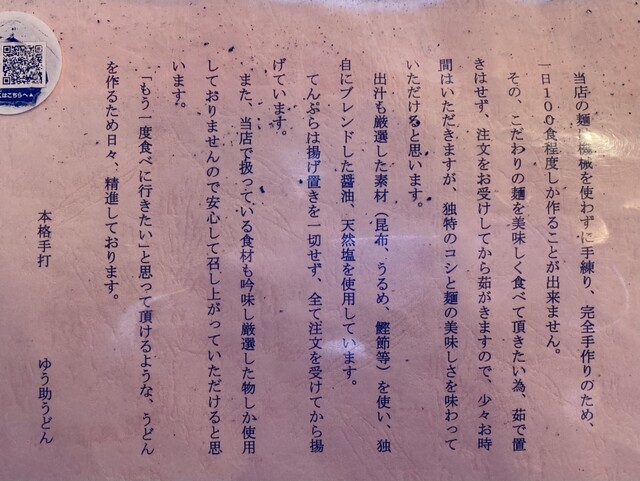 当店の麺は機械を使わずに手練り、完全手作りのため、
一日100食程度しか作ることが出来ません。
その、こだわりの麺を美味しく食べて頂きたい為、茹で置
きはせず、注文をお受けしてから茹がきますので、少々お時
間はいただきますが、独特のコシと麺の美味しさを味わって
いただけると思います。
出汁も厳選した素材（昆布、うるめ、鰹節等）を使い、独
自にブレンドした醤油、天然塩を使用しています。
てんぷらは揚げ置きを一切せず、全て注文を受けてから揚
げています。
また、当店で扱っている食材も吟味し厳選した物しか使用
しておりませんので安心して召し上がっていただけると思
います。
「もう一度食べに行きたい」と思って頂けるような、うどん
を作るため日々、精進しております。
本格手打　ゆう助うどん
はこちらへ